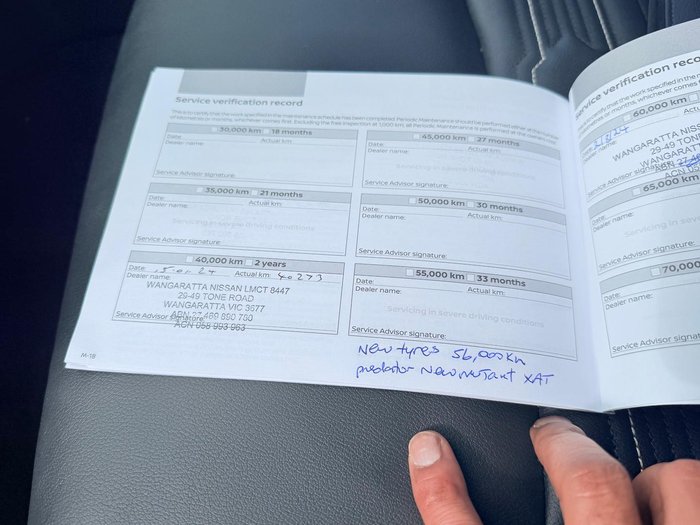 Service verification record
This is to certify that the work specified in the maintenance schedule has been completed. Periodic Maintenance should be performed either at the number
of kilometres or months, whichever comes first. Excluding the free inspection at 1,000 km, all Periodic Maintenance is performed at the customer's cost.
30,000 km 18 months
Date: Actual km:
Dealer name:
Service Advisor signature:
35,000 km 21 months
Date: Actual km:
Dealer name:
Servicing in severe driving conditions
Service Advisor signature:
40,000 km 2 years
Date: 15.01.24 Actual km: 40273
Dealer name:
WANGARATTA NISSAN LMCT 8447
29-49 TONE ROAD
WANGARATTA VIC 3677
ABN 27 489 890 750
Service Advisor signature:
ACN 058 993 963
M-18
45,000 km 27 months
Date: Actual km:
Dealer name:
Servicing in severe driving conditions
Service Advisor signature:
50,000 km 30 months
Date: Actual km:
Dealer name:
Service Advisor signature:
55,000 km 33 months
Date: Actual km:
Dealer name:
Servicing in severe driving conditions
Service Advisor signature:
New tyres 56,000km
predator New mutant XAT
Service verification reco
certify that the work specified in the
or months, whichever comes
60,000 km
Actu
Dealer name:
WANGARATTA NISS
29-49 TON
WANGARATT
Service Advisor signature:
ABN 27 489
ACN 05
65,000 km
Date:
Dealer name:
Servicing in
Service Advisor signature:
70,000
Date:
Dealer name:
Service Advisor sign